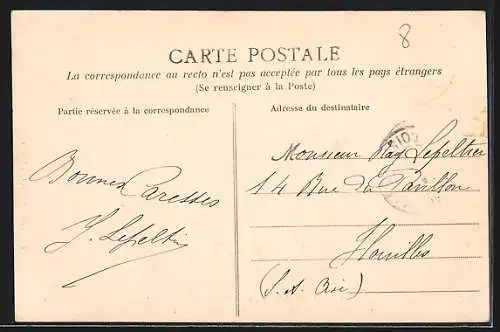 8
CARTE POSTALE
La correspondance au recto n'est pas acceptée par tous les pays étrangers
(Se renseigner à la Poste)
Partie réservée à la correspondance
Bonnes Caresses
Y. Lepeltier
Adresse du destinataire
Monsieur Ray Lepeltier
14 Rue du Pavillon
Houilles
(S. & Oise)